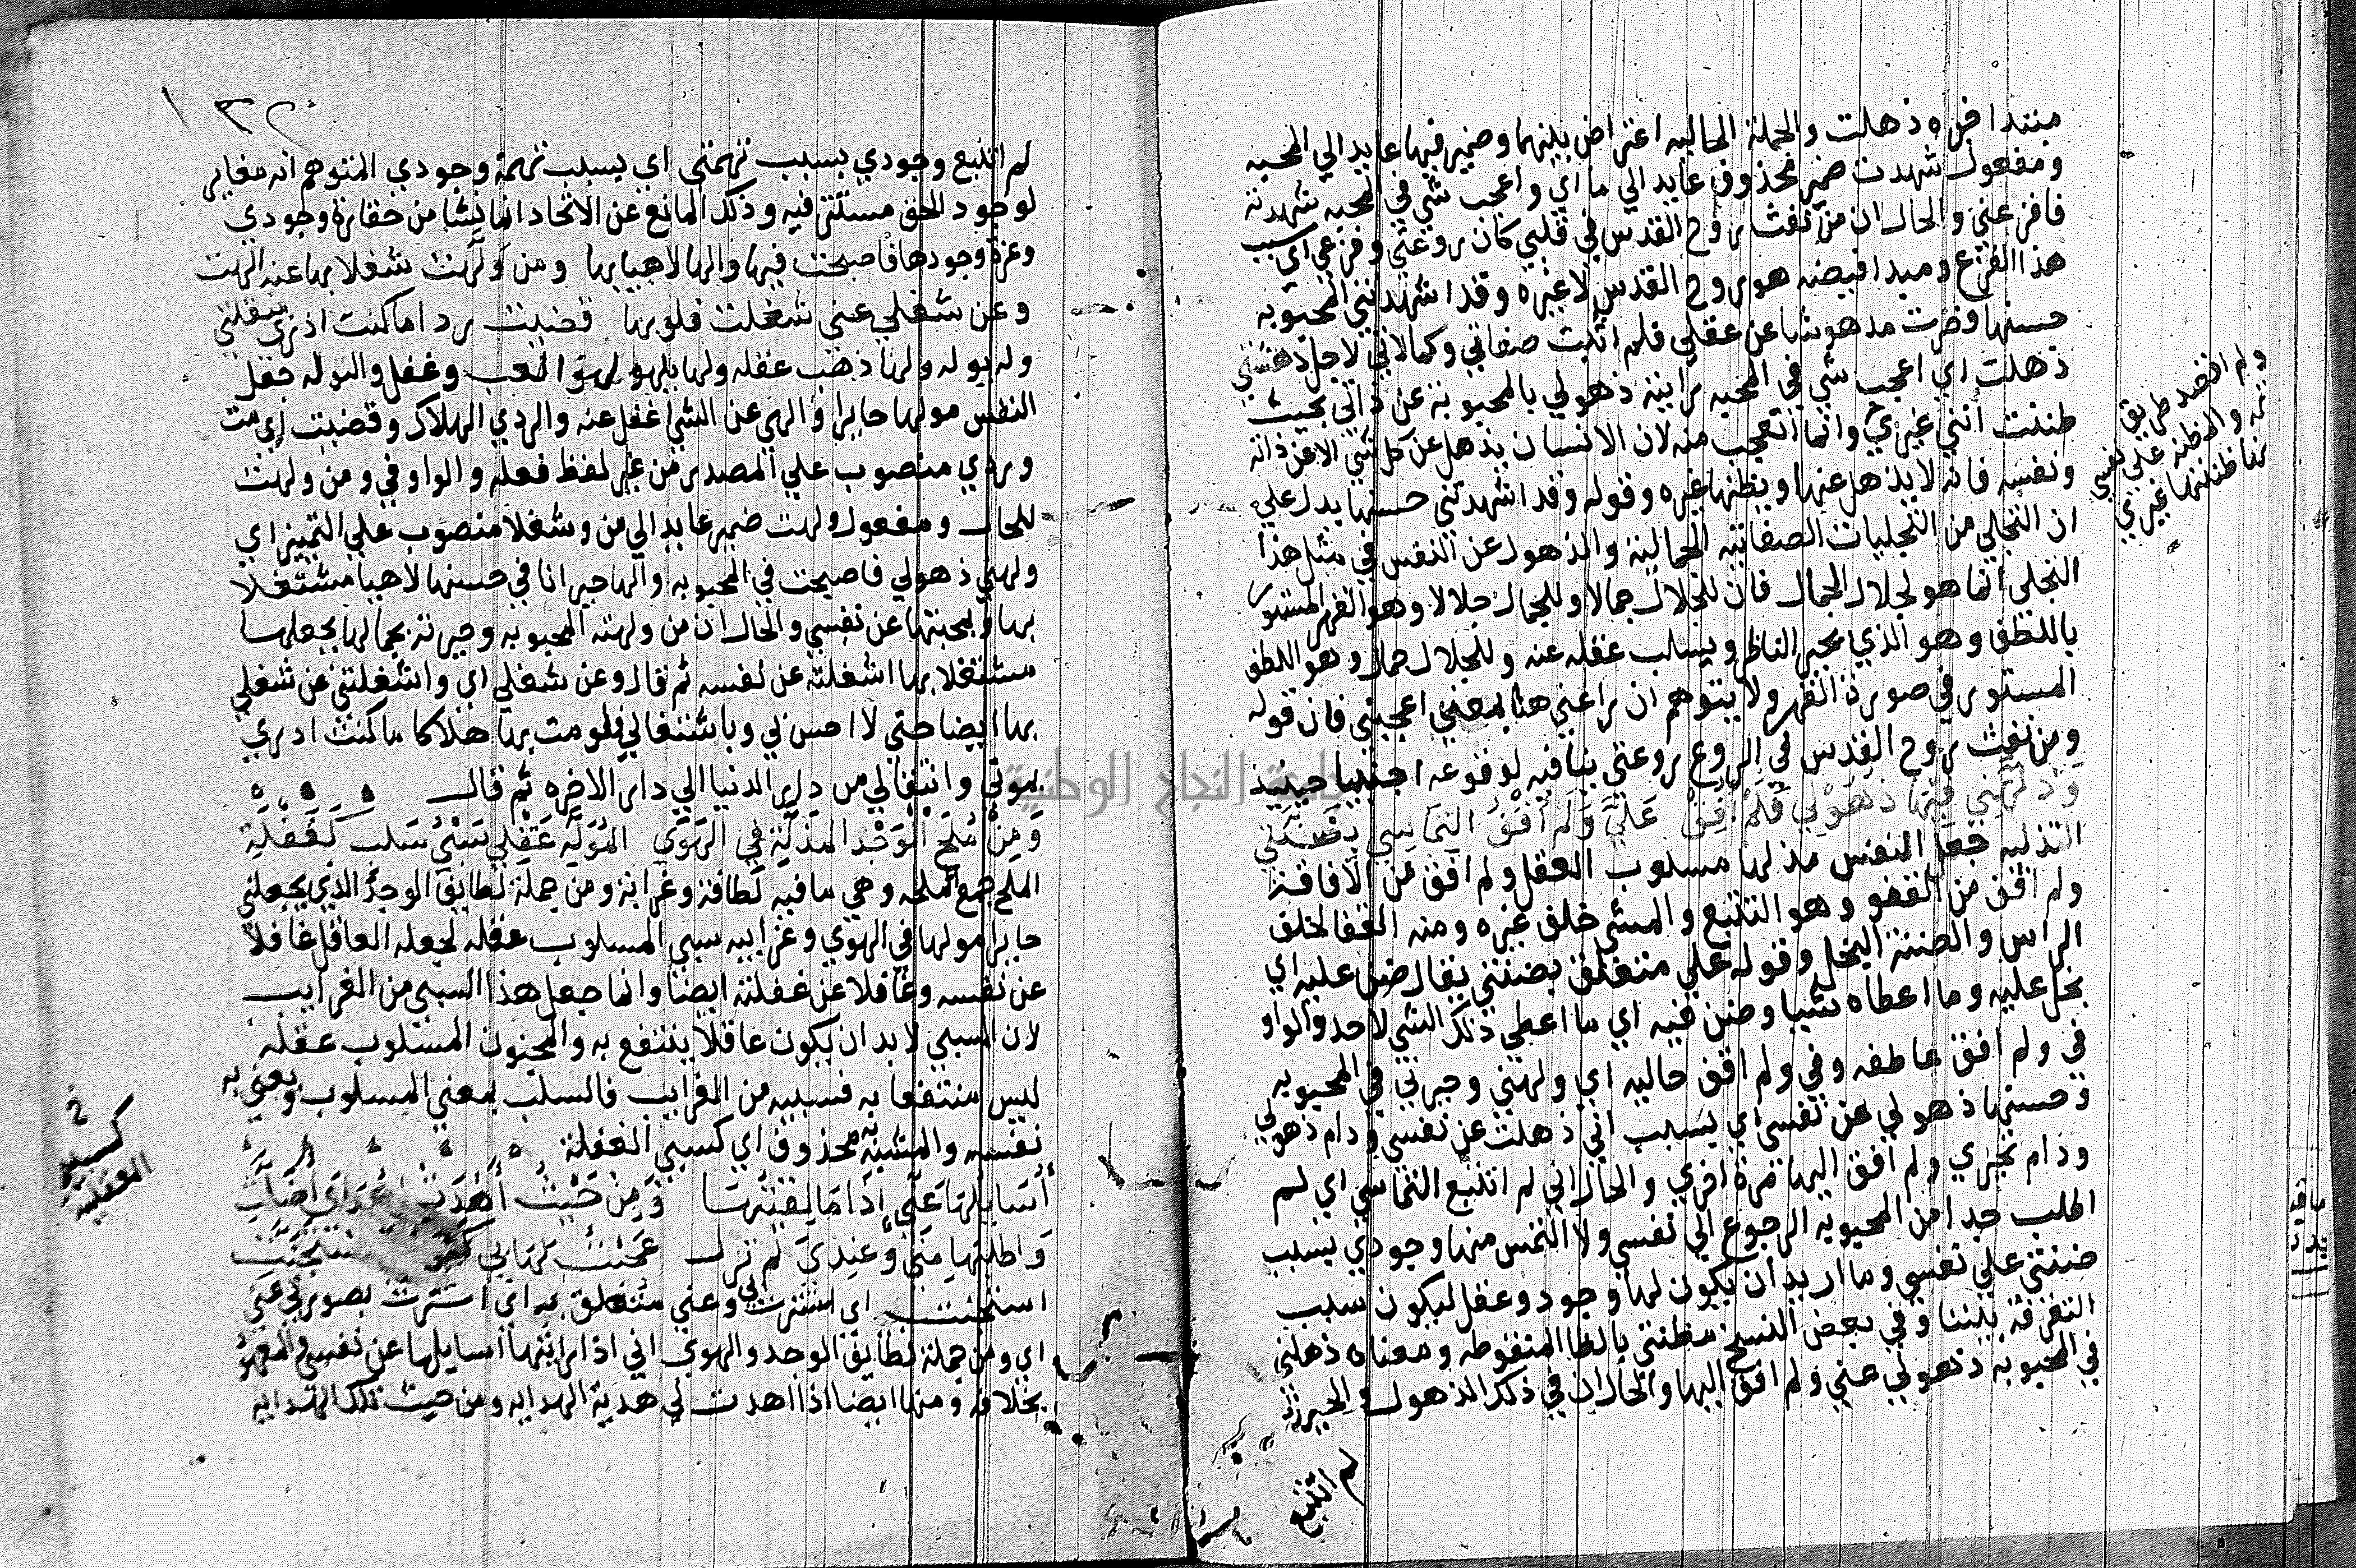 مبتدا خبره ذهلت والجملة الحاليه اعتراض بينهما وضمير فيها عايد الي المحبه
ومفعول شهدت ضمير محذوف عايد الي ما اي واعجب شي في المحبه شهدته
فافزعني والحال ان من نفث روح القدس في قلبي كان روعتي وفزعي اي سبب
هذا الفزع ومبدا فيضه هو روح القدس لا غيره وقد اشهدتني المحبوبه
حسنها فصرت مدهوشا عن عقلي فلم اثبت صفاتي وكمالاتي لاجل دهشتي
ذهلت اي اعجب شي في المحبه رايته ذهولي بالمحبوبة عن ذاتي بحيث
ظننت انني غيري وانما اتعجب منه لان الانسان يذهل عن كل شي الا عن ذاته
ونفسه فانه لا يذهل عنها ويظنها غيره وقوله وقد اشهدتني حسنها يدل علي
ان التجلي من التجليات الصفاتيه الجماليه والذهول عن النفس في مثل هذا
التجلي انما هو لجلال الجمال فان للجلال جمالا وللجمال جلالا وهو القهر المستور
باللطف وهو الذي يحير الناظر ويسلب عقله عنه وللجلال جمال وهو اللطف
المستور في صورة القهر ولا يتوهم ان راعني هنا بمعني اعجبني فان قوله
ومن نفث روح القدس في الروع روعتي ينافيه لوقوعه اجنبيا حينيذ
وَذلهني فيها ذهولي فلم افق علي ولم اقف التماسي بضنتي
التدليه جعل النفس مدلها مسلوب العقل ولم افق من الافاقة
ولم اقف من القفو وهو التتبع والمشي خلف غيره ومنه القفا لخلف
الراس والضنة البخل وقوله علي متعلق بضنتي يقال ضن عليه اي
بخل عليه وما اعطاه شيا وضن فيه اي ما اعطي ذلك الشي لاحد والواو
في ولم افق عاطفه وفي ولم اقف حاليه اي ولهني وحيرني في المحبوبه
وحسنها ذهولي عن نفسي اي بسبب اني ذهلت عن نفسي ودام ذهولي
ودام تحيري ولم افق اليها مرة اخري والحال اني لم اتتبع التماسي اي لم
اطلب جدا من المحبوبه الرجوع الي نفسي ولا التمس منها وجودي بسبب
ضنتي علي نفسي وما اريد ان يكون لها وجود وعقل ليكون سبب
التفرقة بيننا وفي بعض النسخ بظنتي بالظا المنقوطه ومعناه ذهلني
في المحبوبه ذهولي عني ولم افق اليها والحال ان في ذلك الذهول والحيرة
لم اتتبع
ولم اقصد طريق
ظننتها غيري
١٣٢
لم اتتبع وجودي بسبب تهمتي اي بسبب تهمة وجودي المتوهم انه مغاير
لوجود الحق مستتر فيه وذلك المانع عن الاتحاد انما ينشا من حقارة وجودي
وعزة وجودها فاصبحت فيها والها لاهيا بها ومن ولهت شغلا بها عنه الهت
وعن شغلي عني شغلت فلو بها قضيت ردا ما كنت ادري بنقلتي
وله يوله ولها ذهب عقله ولها يلهو لهوا لعب وغفل والتوله جعل
النفس مولها حايرا والهي عن الشي غفل عنه والردي الهلاك وقضيت اي مت
وردي منصوب علي المصدر من غير لفظ فعله والواو في ومن ولهت
للحال ومفعول ولهت ضمير عايد الي من وشغلا منصوب علي التمييز اي
ولهني ذهولي فاصبحت في المحبوبه والها حيرانا في حسنها لاهيا مشتغلا
بها وبمحبتها عن نفسي والحال ان من ولهته المحبوبه وحيرته بجمالها بجعلها
مشتغلا بها اشغلته عن نفسه ثم قال وعن شغلي اي واشغلتني عن شغلي
بها ايضا حتي لا احس لي وباشتغالي فلو مت بها هلاكا ما كنت ادري
بموتي وانتقالي من دار الدنيا الي دار الاخره ثم قال
وَمِنْ مُلَحِ الْوَجْدِ المدلّهِ في الهَوَي المُوَلِّهِ عَقْلي سَبْيُ سَلْب كغَفْلَةِ
الملح جمع ملحه وهي ما فيه لطافة وغرابة ومن جملة لطايف الوجد الذي يجعلني
حايرا مولها في الهوي وغرايبه سبي المسلوب عقله لجعله العاقل غافلا
عن نفسه وغافلا عن غفلته ايضا وانما جعل هذا السبي من الغرايب
لان السبي لا بد ان يكون عاقلا ينتفع به والمجنون المسلوب عقله
ليس منتفعا به فسبيه من الغرايب فالسلب بمعني المسلوب ويعني به
نفسه والمشبه به محذوف اي كسبي الغفلة
أُسَايِلُهَا عَنّي اذَا مَا لَقِيتُهَا وَمِنْ حَيْثُ أَهْدَتْ لي هُدَاي أَضَلّتِ
وَاطلبها منّي وَعِندي لم تزل عجبت لها بي كيف عني استجنّت
استجنت اي استترت وعني متعلق به اي استترت بصورتي عني
اي ومن جملة لطايف الوجد والهوي اني اذا رايتها اسايلها عن نفسي
بخلافه ومنها ايضا اذا اهدت لي هدية الهدايه ومن حيث تلك الهدايه
كسبي
الغفلة
جامعة النجاح الوطنية